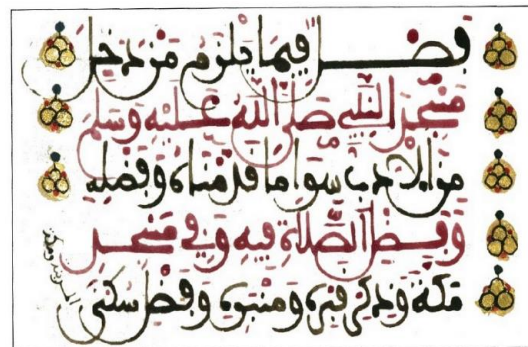 فصل فيما يلزم من دخل
مسجد النبي صلى الله عليه وسلم
من الأدب سوا ما قدمناه وفضله
وفضل الصلاة فيه وفي مسجد
مكة وذكر قبره ومنبره وفضل سكنى